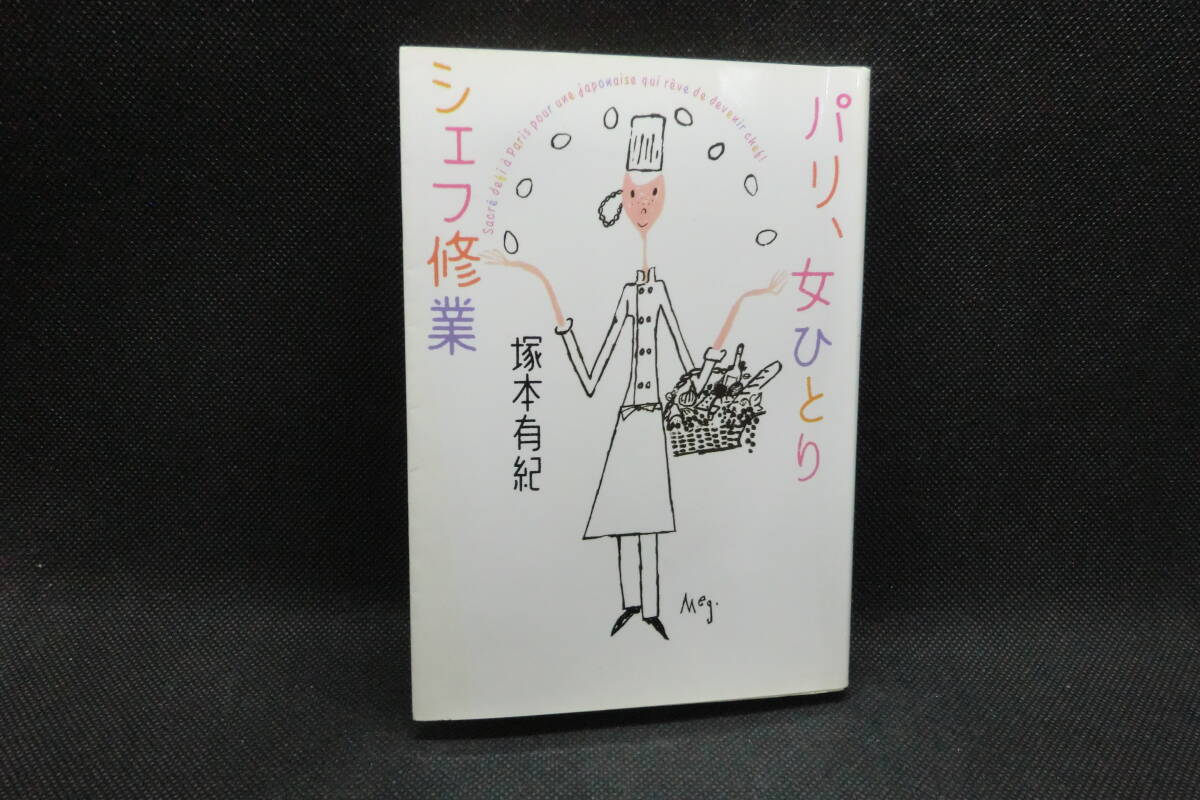 パリ、女ひとり
シェフ修業
Sacré defi à Paris pour une japonaise qui rêve de devenir chef!
塚本有紀
Meg.